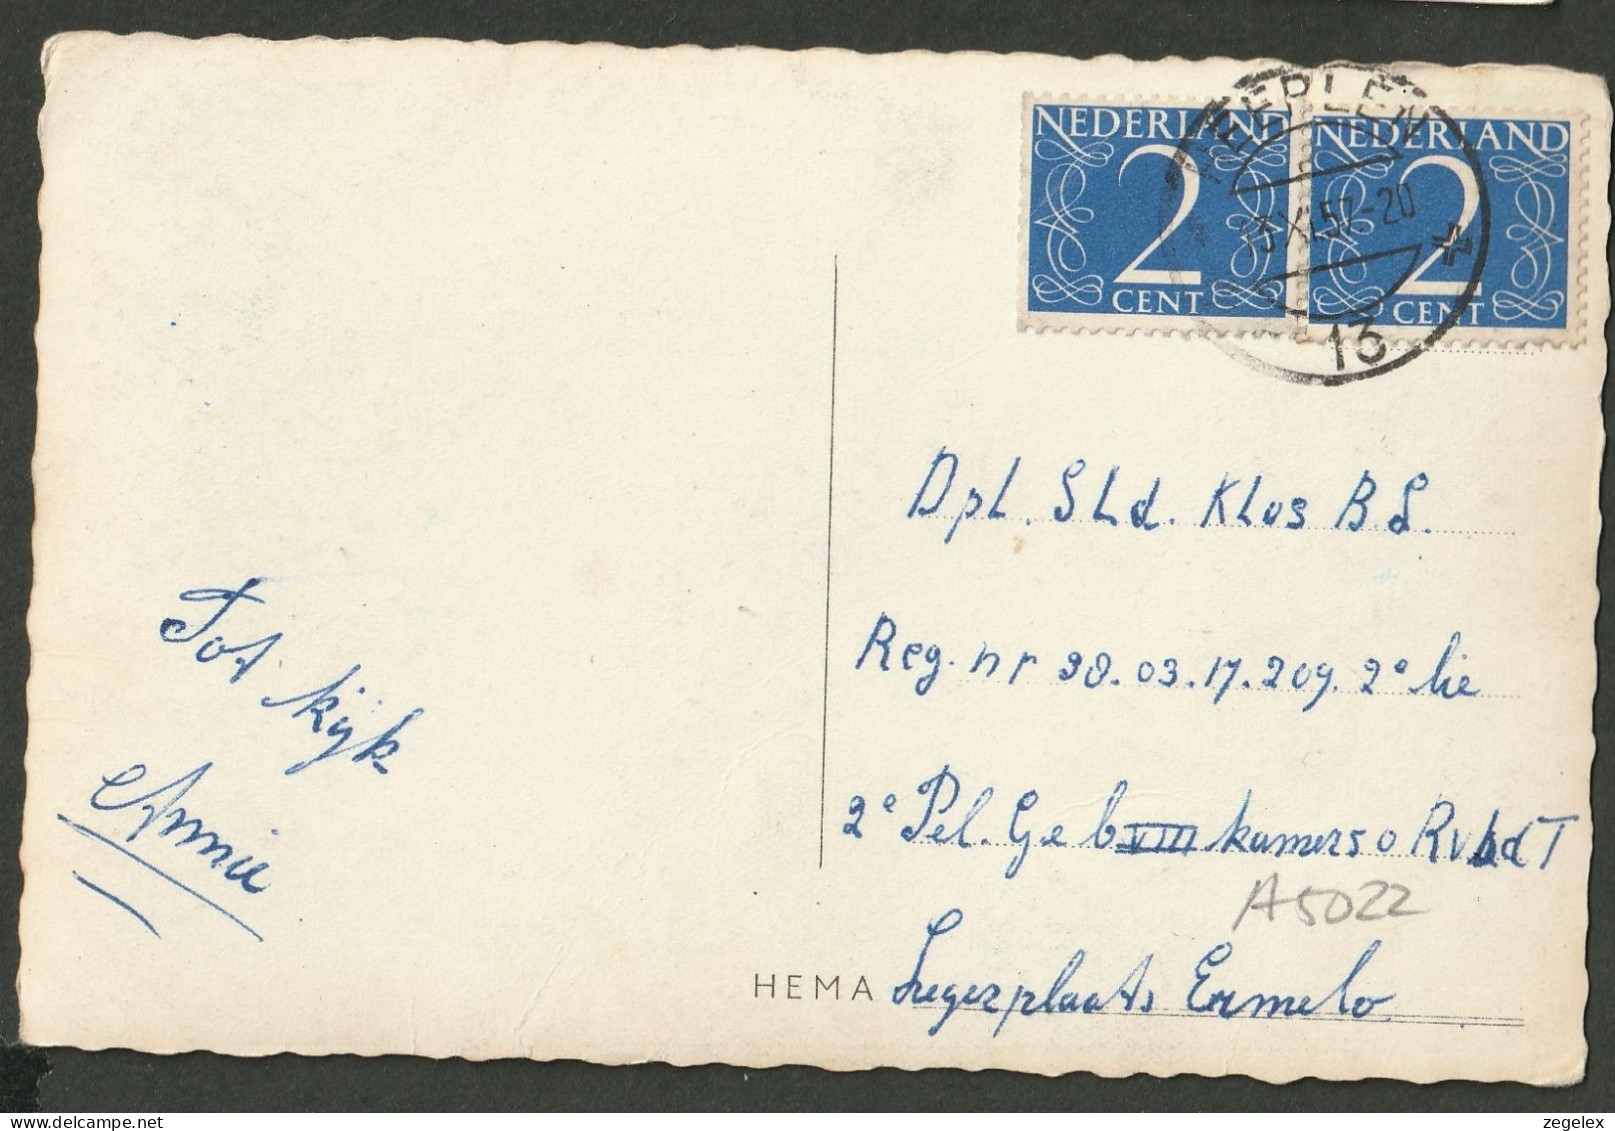 NEDERLAND
2
CENT
NEDERLAND
2
CENT
HEERLEN
13.XI.57-20
13
Dpl. Sld. Klos B.S.
Reg. nr 38.03.17.209. 2e lie
2e Pel. Geb VIII kamer 50 RvhdT
A5022
Legerplaats Ermelo
Tot kijk
Annie
HEMA
zegelex